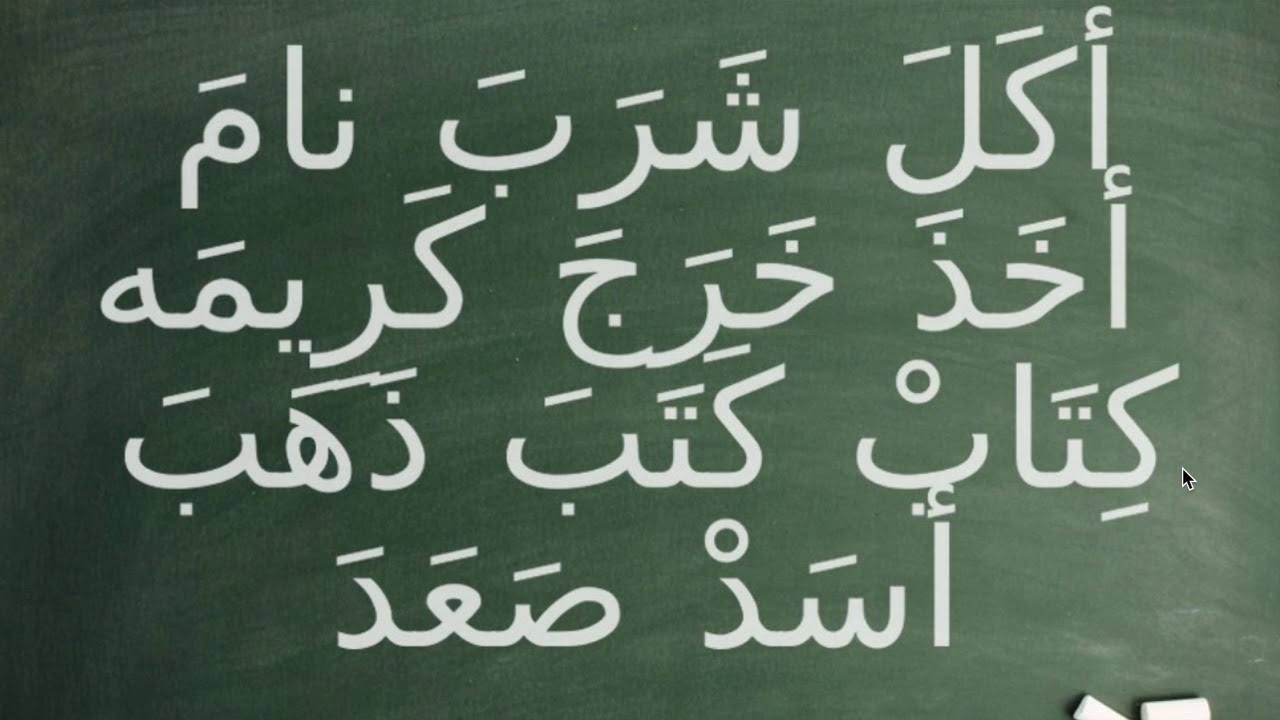 أكَلَ شَرَبَ نامَ
أخَذَ خَرَجَ كَرِيمَه
كِتَابْ كَتَبَ ذَهَبَ
أسَدْ صَعَدَ